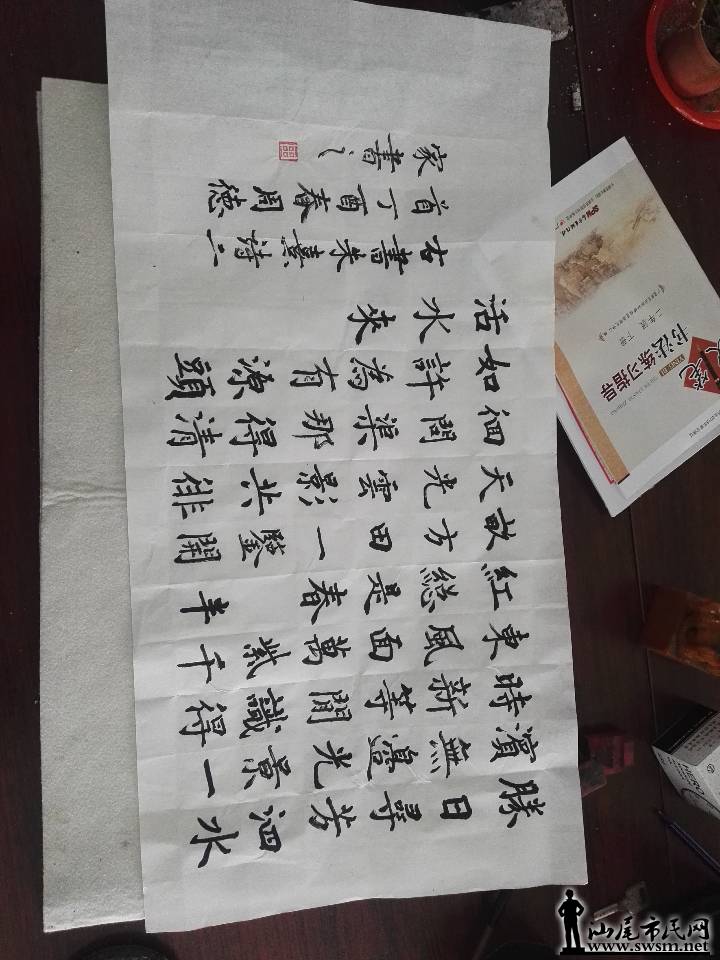 勝日尋芳泗水
濱無邊光景一
時新等閒識得
東風面萬紫千
紅総是春 半
畝方田一鑒開
天光雲影共徘
徊問渠那得清
如許為有源頭
活水來
古書朱熹詩二
首丁酉春周德
家書之
书法练习指导
二年级 下册
汕尾市民网
www.swsm.net